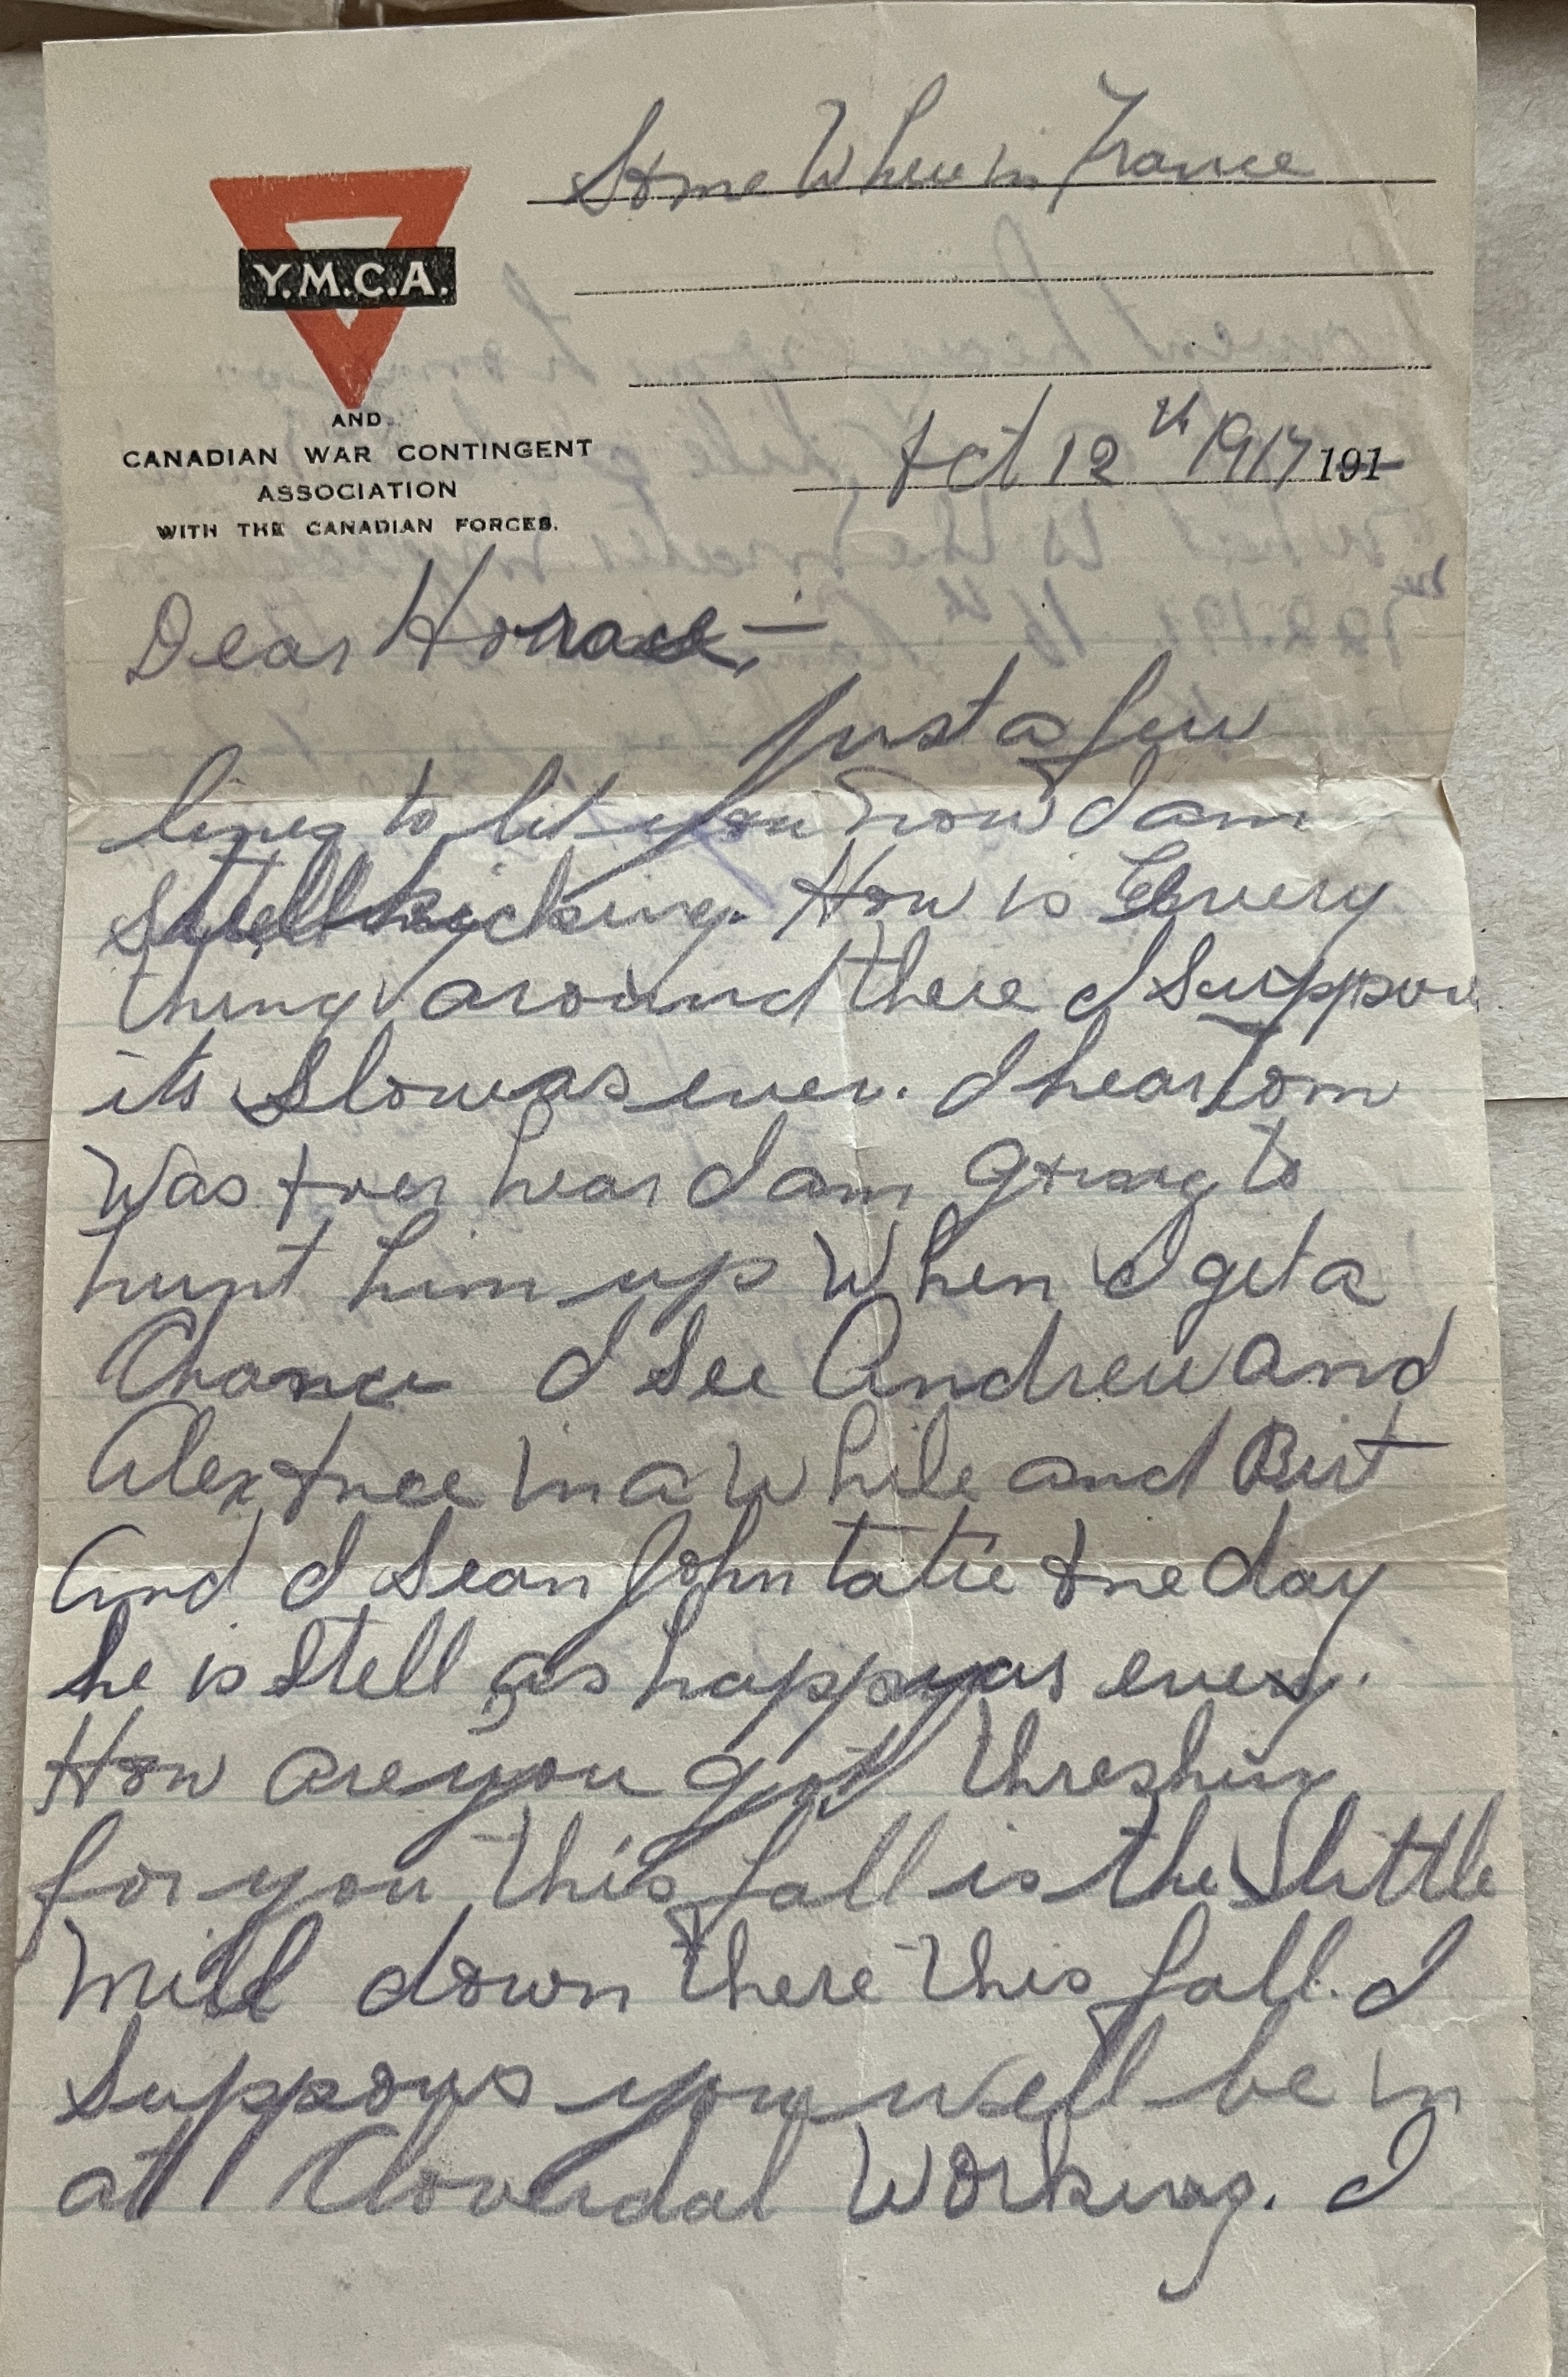 Some Where in France
Y.M.C.A.
AND
CANADIAN WAR CONTINGENT
ASSOCIATION
WITH THE CANADIAN FORCES.
Oct 12th 1917 191
Dear Horace,—
Just a few
lines to let you now I am
still kicking. How is Every
thing around there I suppose
its slow as ever. I hear Tom
was over hear I am going to
hunt him up when I get a
Chance I see Andrew and
Alex once in a while and Birt
and I sean John tatie one day
he is still as happy as ever.
How are you got threshing
for you this fall is the little
mill down there this fall. I
suppows you will be in
at Cloverdal working. I